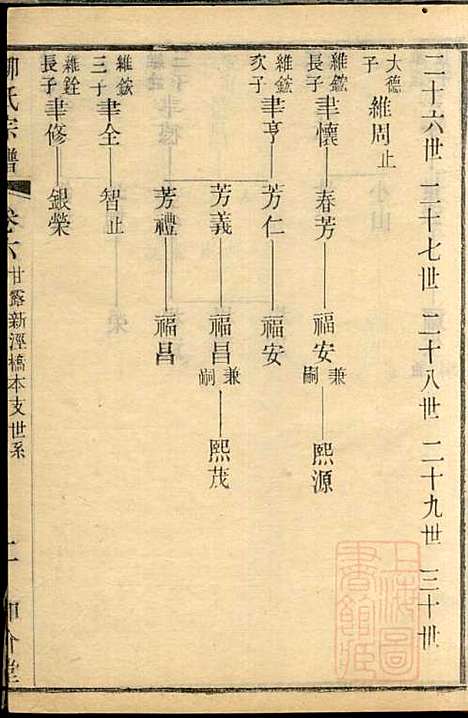 二十六世 二十七世 二十八世 二十九世 三十世
大德子 維周止
維鋐長子 聿懷 春芳 福安兼嗣 熙源
維鋐次子 聿亨 芳仁 福安
芳義 福昌兼嗣 熙茂
芳禮 福昌
維鋐三子 聿全 智止
維銓長子 聿修 銀榮
氏宗譜 卷六 甘露新涇橋本支世系 二
上海圖書館藏